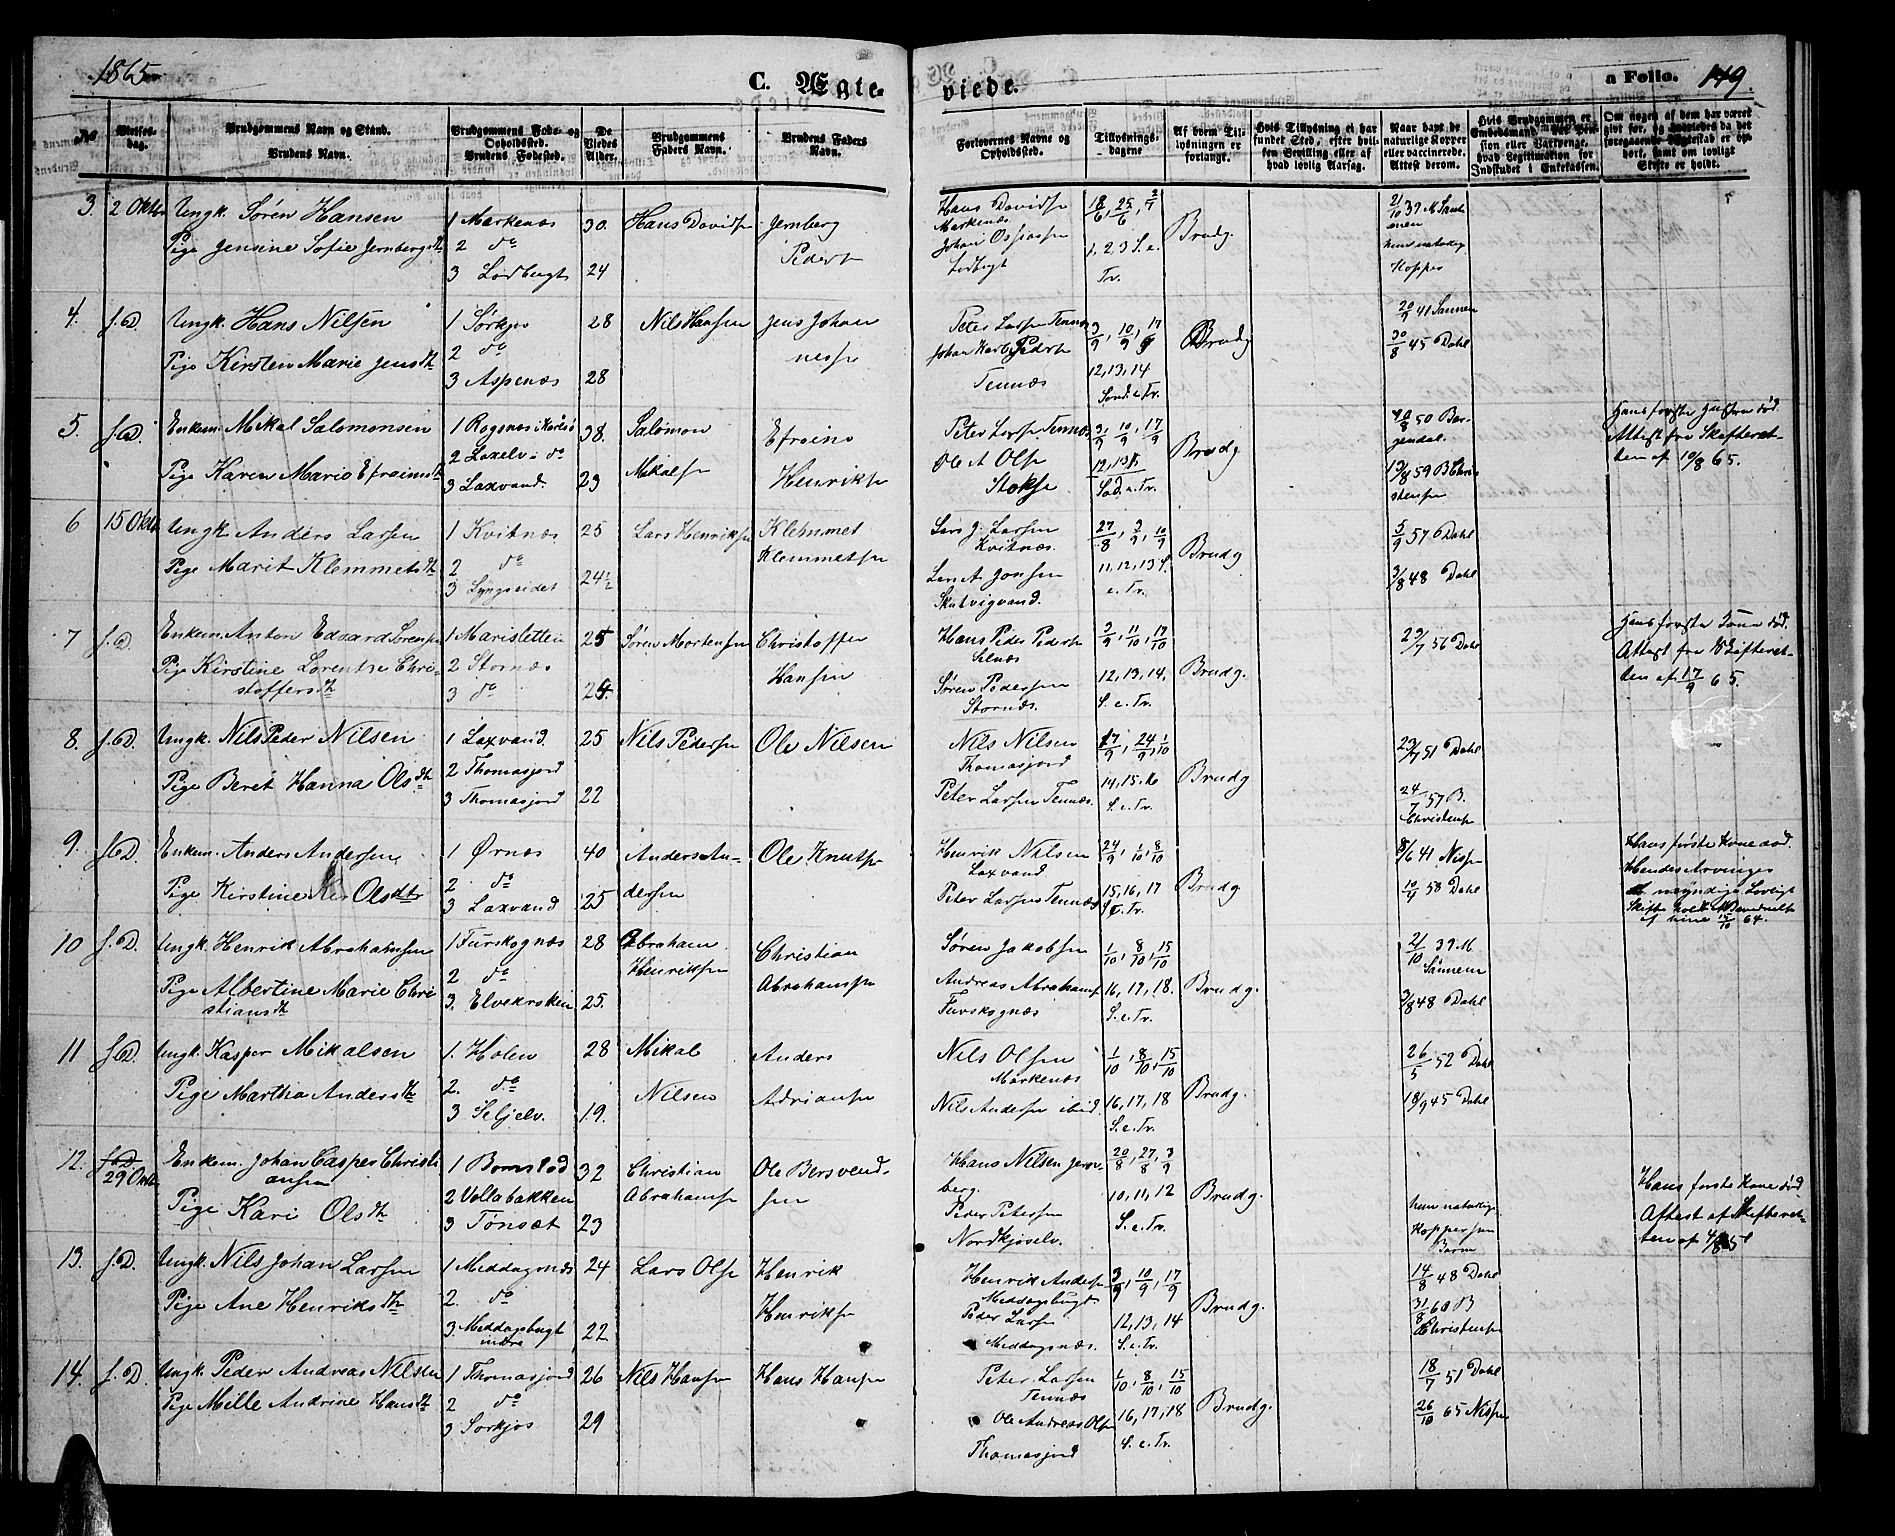 1865
C. Ægte-
viede.
a Folio. 149.
No
Vielses-
dag.
Brudgommens Navn og Stand.
Brudens Navn.
Brudgommens Føde- og
Opholdssted.
Brudens Fødested.
De
Viedes
Alder.
Brudgommens
Faders Navn.
Brudens Faders
Navn.
Forlovernes Navne og
Opholdssted.
Tillysnings-
dagene
Af hvem Til-
lysningen er
forlangt.
Hvis Tillysning ei har
fundet Sted, efter hvil-
ken Bevilling eller af
hvad lovlig Aarsag.
Naar havt de
naturlige Kopper
eller vaccinerede.
Attest derom.
Hvis Brudgommen er
Embedsmand
sion eller Værpenge,
hvad Legitimation for
Indskudet i Enkekassen.
Om nogen af dem har været
gift før, og hvorledes da det
foregaaende Ægteskab er op-
hørt, samt om lovligt
Skifte er holdt.
3. 2 Oktbr Ungk. Sören Hansen 1 Markenæs 30. Hans Davidsn Jernberg
Pige Jensine Sofie Jernbergsdtr 2 do Pedersn
3 Lordbugt 24
Hans Davidsn 18/6, 25/6, 2/7 Brudg. 21/10 37
Markenæs
Johan Ossiassn 1, 2, 3 S. e. hun naturlig
Tr. Kopper
4. s.D. Ungk. Hans Nilsen 1 Sörkjos 28 Nils Hansen Jens Johan
Pige Kirsten Marie Jensdtr 2 do nessn
3 Aspenæs 28
Peter Larsen Tennæs 3/9, 10/9, 17/9 Brudg 20/9 41
Johan Pedersn 30/8 45 Dahl
Tennæs 12, 13, 14
Sønd. e. Tr.
5. s.D. Enkem. Mikal Salomonsen 1 Rogsnæs i Karlsö 38. Salomon Efraim
2 Laxelv i do Mikalsn Henriksn
Pige Karen Marie Efraimsdtr 3 Laxvand. 23
Peter Larsn Tennæs 3/9, 10/9, 17/9 Brudg 50 Ber- Hans første Hustru død.
Ole A Olsn gendal. Attest fra Skifteret-
Stoksn 59 B Chri- ten af 10/8 65.
stensen
6 15 Oktbr Ungk. Anders Larsen 1 Kvitnæs 25 Lars Henriksen Klemmet
Pige Marit Klemmetsdtr 2 do Klemmetsen
3 Lyngseidet 24½
Lars J. Larsen 27/8, 3/9, 10/9 Brudg 5/9 57 Dahl
Kvitnæs.
Lars A Jonsen 11, 12, 13 S. 3/8 48 Dahl
Skutvigvand. e. Tr.
7 s.D Enkem. Anton Edvard Sörensen 1 Marisletten 25 Sören Mortensen Christoffer
Pige Kirstine Lorentze Chri- 2 Stornæs Hansen
stoffersdtr 3 do 24.
Hans Peder Pedersn 12, 13, 14. Brudg. 29/7 56 Dahl Hans første Kone død.
Sören Pedersen S. e. Tr. Attest fra Skifteret-
Stornæs. ten af 17/9 65.
8. s.D. Ungk. Nils Peder Nilsen 1 Laxvand. 25 Nils Pedersen Ole Nilsen
Pige Berit Hanna Olsdtr 2 Thomasjord
3 Thomasjord 22
Nils Nilsen 17/9, 24/9, 1/10 Brudg 23/7 51 Dahl
Thomasjord
Peter Larsen Tennæs. 14, 15, 16 24/7 57 B.
S. e. Tr. Christensn
9. s.D. Enkem. Anders Andersen 1 Örnæs 40 Anders An- Ole Knutsn
Pige Kirstine Olsdtr 2 do dersen
3 Laxvand 25
Henrik Nilsen 24/9, 1/10, 8/10 Brudg 8/6 41 Hans første Kone død.
Laxvand Hendes Arvinger
Peter Larsen Tennæs 15, 16, 17 10/9 58 Dahl myndige. Lovligt
S. e. Tr. Skifte
10 s.D. Ungk. Henrik Abrahamsen 1 Furskognæs 28 Abraham Christian
Pige Albertine Marie Chri- 2 do Henriksen Abrahamsn
stiansdtr 3. Elvekroken 25.
Sören Jakobsen 1/10, 8/10, 15/10 Brudg. 21/10 39
Andreas Abrahamsn 16, 17, 18. 3/8 48 Dahl
Furskognæs S. e. Tr.
11 s.D. Ungk. Kasper Mikalsen 1. Holen 28 Mikal Anders
Pige Martha Andersdtr 2. do Nilsen Adriansen
3 Seljelv. 19.
Nils Olsen 1/10, 8/10, 15/10 Brudg. 26/5 52 Dahl
Markenæs
Nils Andersen ibid. 16, 17, 18 18/9 45 Dahl
S. e. Tr.
12. s.D. 29 Oktbr Enkem. Johan Casper Christi- 1 Bomstad 32 Christian Ole Bersvend-
ansen 2 Vollabakken Abrahamsn sen
Pige Kari Olsdtr 3 Tönsæt 23
Hans Nilsen Jern- 20/8, 27/8, 3/9 Brudg. hun naturlige Hans første Kone død
berg. 10, 11, 12 Kopper som Attest af Skifteret-
Peder Petersen S. e. Tr. Barn ten af
Nordkjoselv.
13. s.D. Ungk. Nils Johan Larsen 1 Meddagsnæs 24 Lars Olsn Henrik
Pige Ane Henriksdtr 2. do Henriksn
3. Meddagsbugt 22
indre
Henrik Andersn 3/9, 10/9, 17/9 Brudg. 14/8 48 Dahl
Meddagsbugt.
Peder Larsn 12, 13, 14 31/8 60 B
Meddagsnæs. S. e. Tr. Christensn
14. s.D. Ungk. Peder Andreas Nilsen 1 Thomasjord 26 Nils Hansn Hans Hansen
Pige Mille Andrine Hansdtr 2 do
3 Sorkjos 29
Peter Larsen 1/10, 8/10, 15/10 Brudg. 18/7 51 Dahl
Tennæs
Ole Andreas Olsn 16, 17, 18 26/10 65
Thomasjord S. e. Tr.